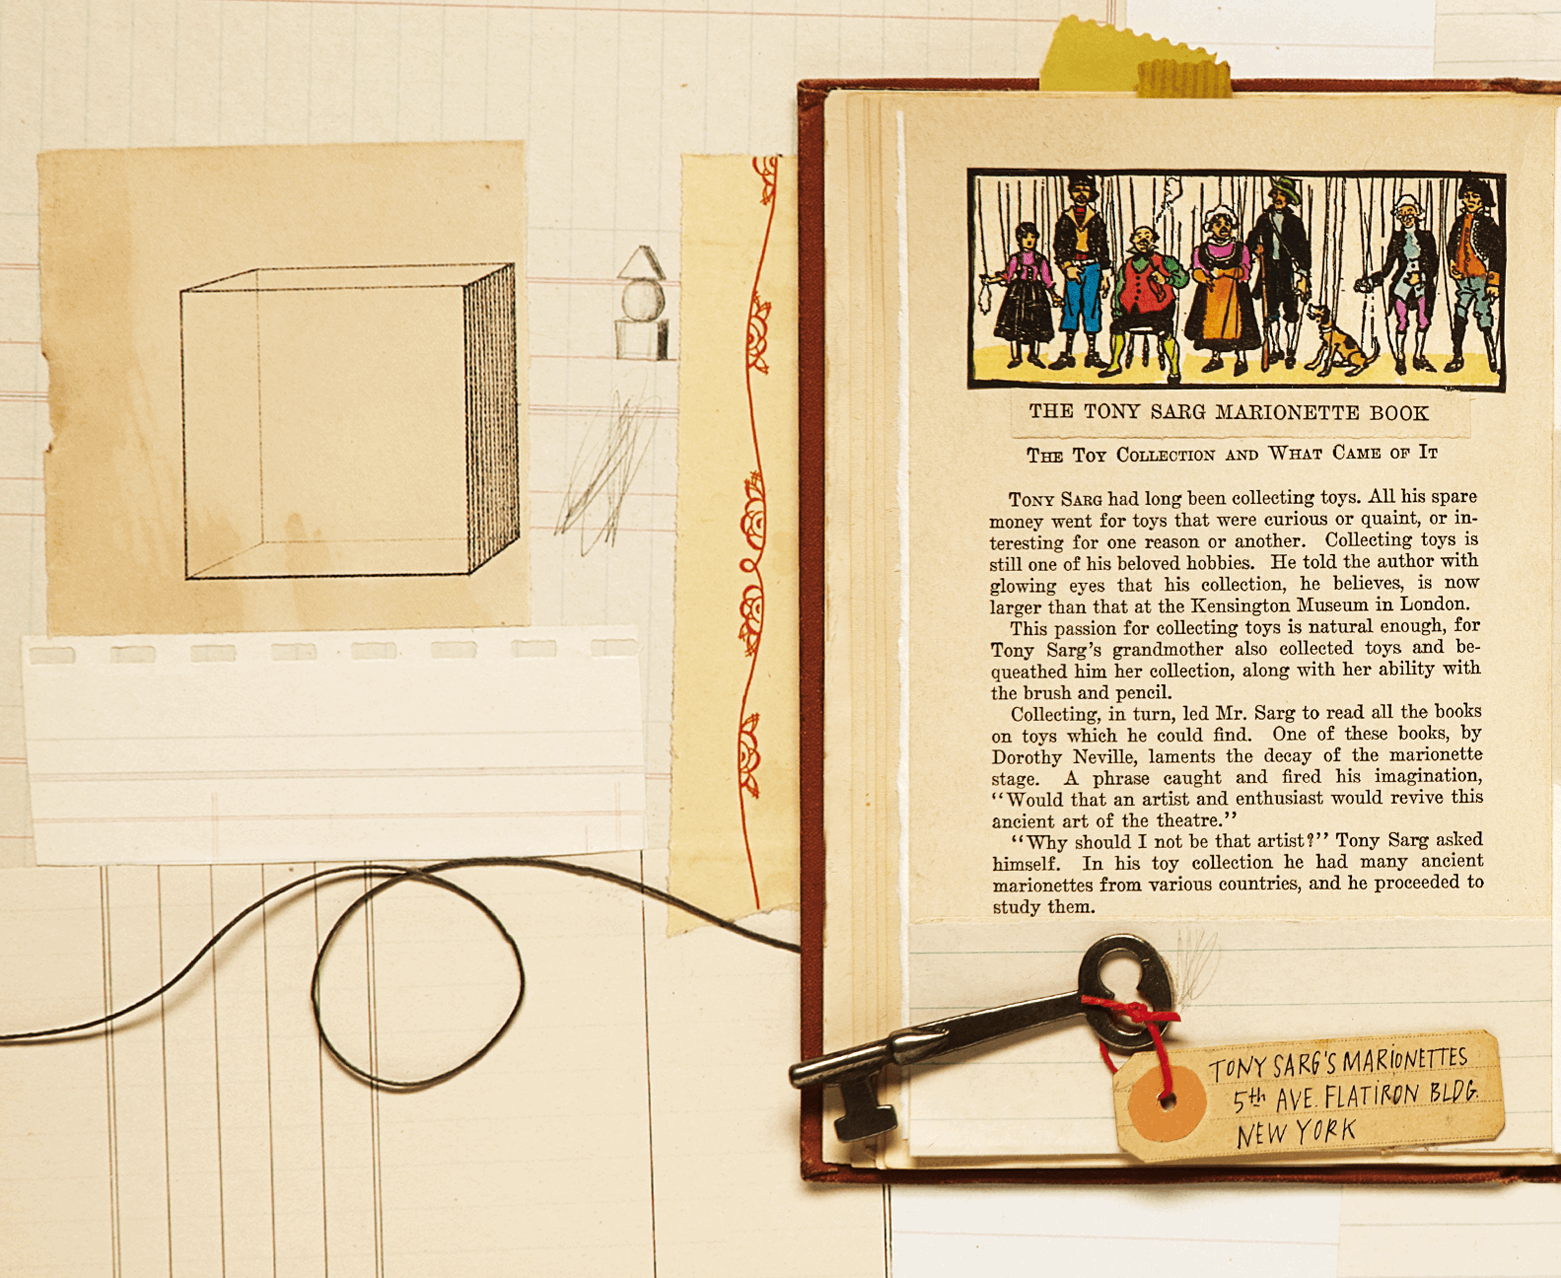 THE TONY SARG MARIONETTE BOOK
THE TOY COLLECTION AND WHAT CAME OF IT
TONY SARG had long been collecting toys. All his spare
money went for toys that were curious or quaint, or in-
teresting for one reason or another. Collecting toys is
still one of his beloved hobbies. He told the author with
glowing eyes that his collection, he believes, is now
larger than that at the Kensington Museum in London.
This passion for collecting toys is natural enough, for
Tony Sarg's grandmother also collected toys and be-
queathed him her collection, along with her ability with
the brush and pencil.
Collecting, in turn, led Mr. Sarg to read all the books
on toys which he could find. One of these books, by
Dorothy Neville, laments the decay of the marionette
stage. A phrase caught and fired his imagination,
“Would that an artist and enthusiast would revive this
ancient art of the theatre.”
“Why should I not be that artist?” Tony Sarg asked
himself. In his toy collection he had many ancient
marionettes from various countries, and he proceeded to
study them.
TONY SARG'S MARIONETTES
5th AVE. FLATIRON BLDG.
NEW YORK